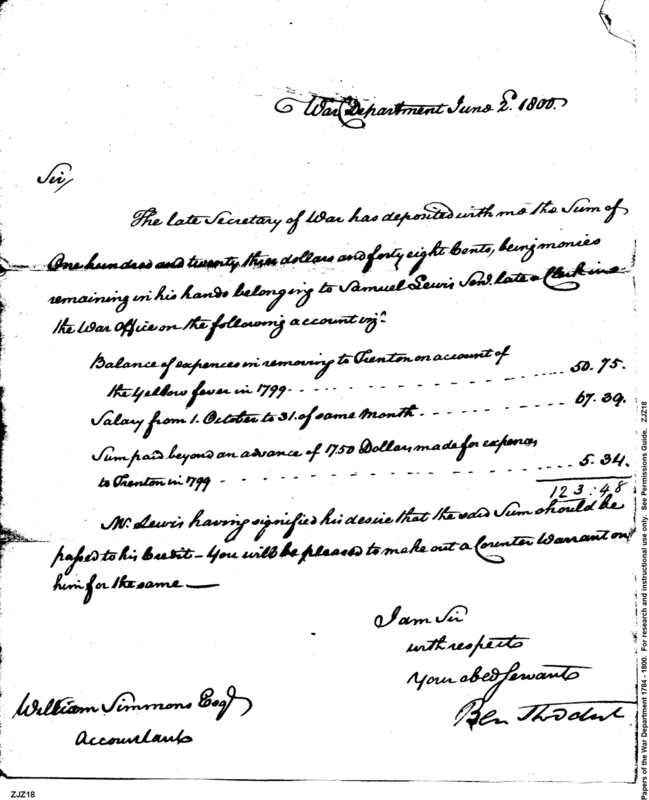 War Department June 2d. 1800.
Sir,
The late Secretary of War has deposited with me the Sum of
One hundred and twenty three dollars and forty eight Cents, being monies
remaining in his hands belonging to Samuel Lewis Senr. late a Clerk in
the War Office on the following account viz.
Balance of expences in removing to Trenton on account of
the Yellow fever in 1799 - - - - - - - - - - - - - - - 50.75.
Salary from 1. October to 31. of same Month - - - - - - - 67.39.
Sum paid beyond an advance of 1750 Dollars made for expences
to Trenton in 1799 - - - - - - - - - - - - - - - - - - 5.34.
123.48
Mr. Lewis having signified his desire that the said Sum should be
passed to his Credit – You will be pleased to make out a Counter Warrant on
him for the same —
I am Sir
with respect
Your obed Servant
Ben Stoddert
William Simmons Esqr
Accountant
ZJZ18
Papers of the War Department 1784 - 1800. For research and instructional use only. See Permissions Guide. ZJZ18